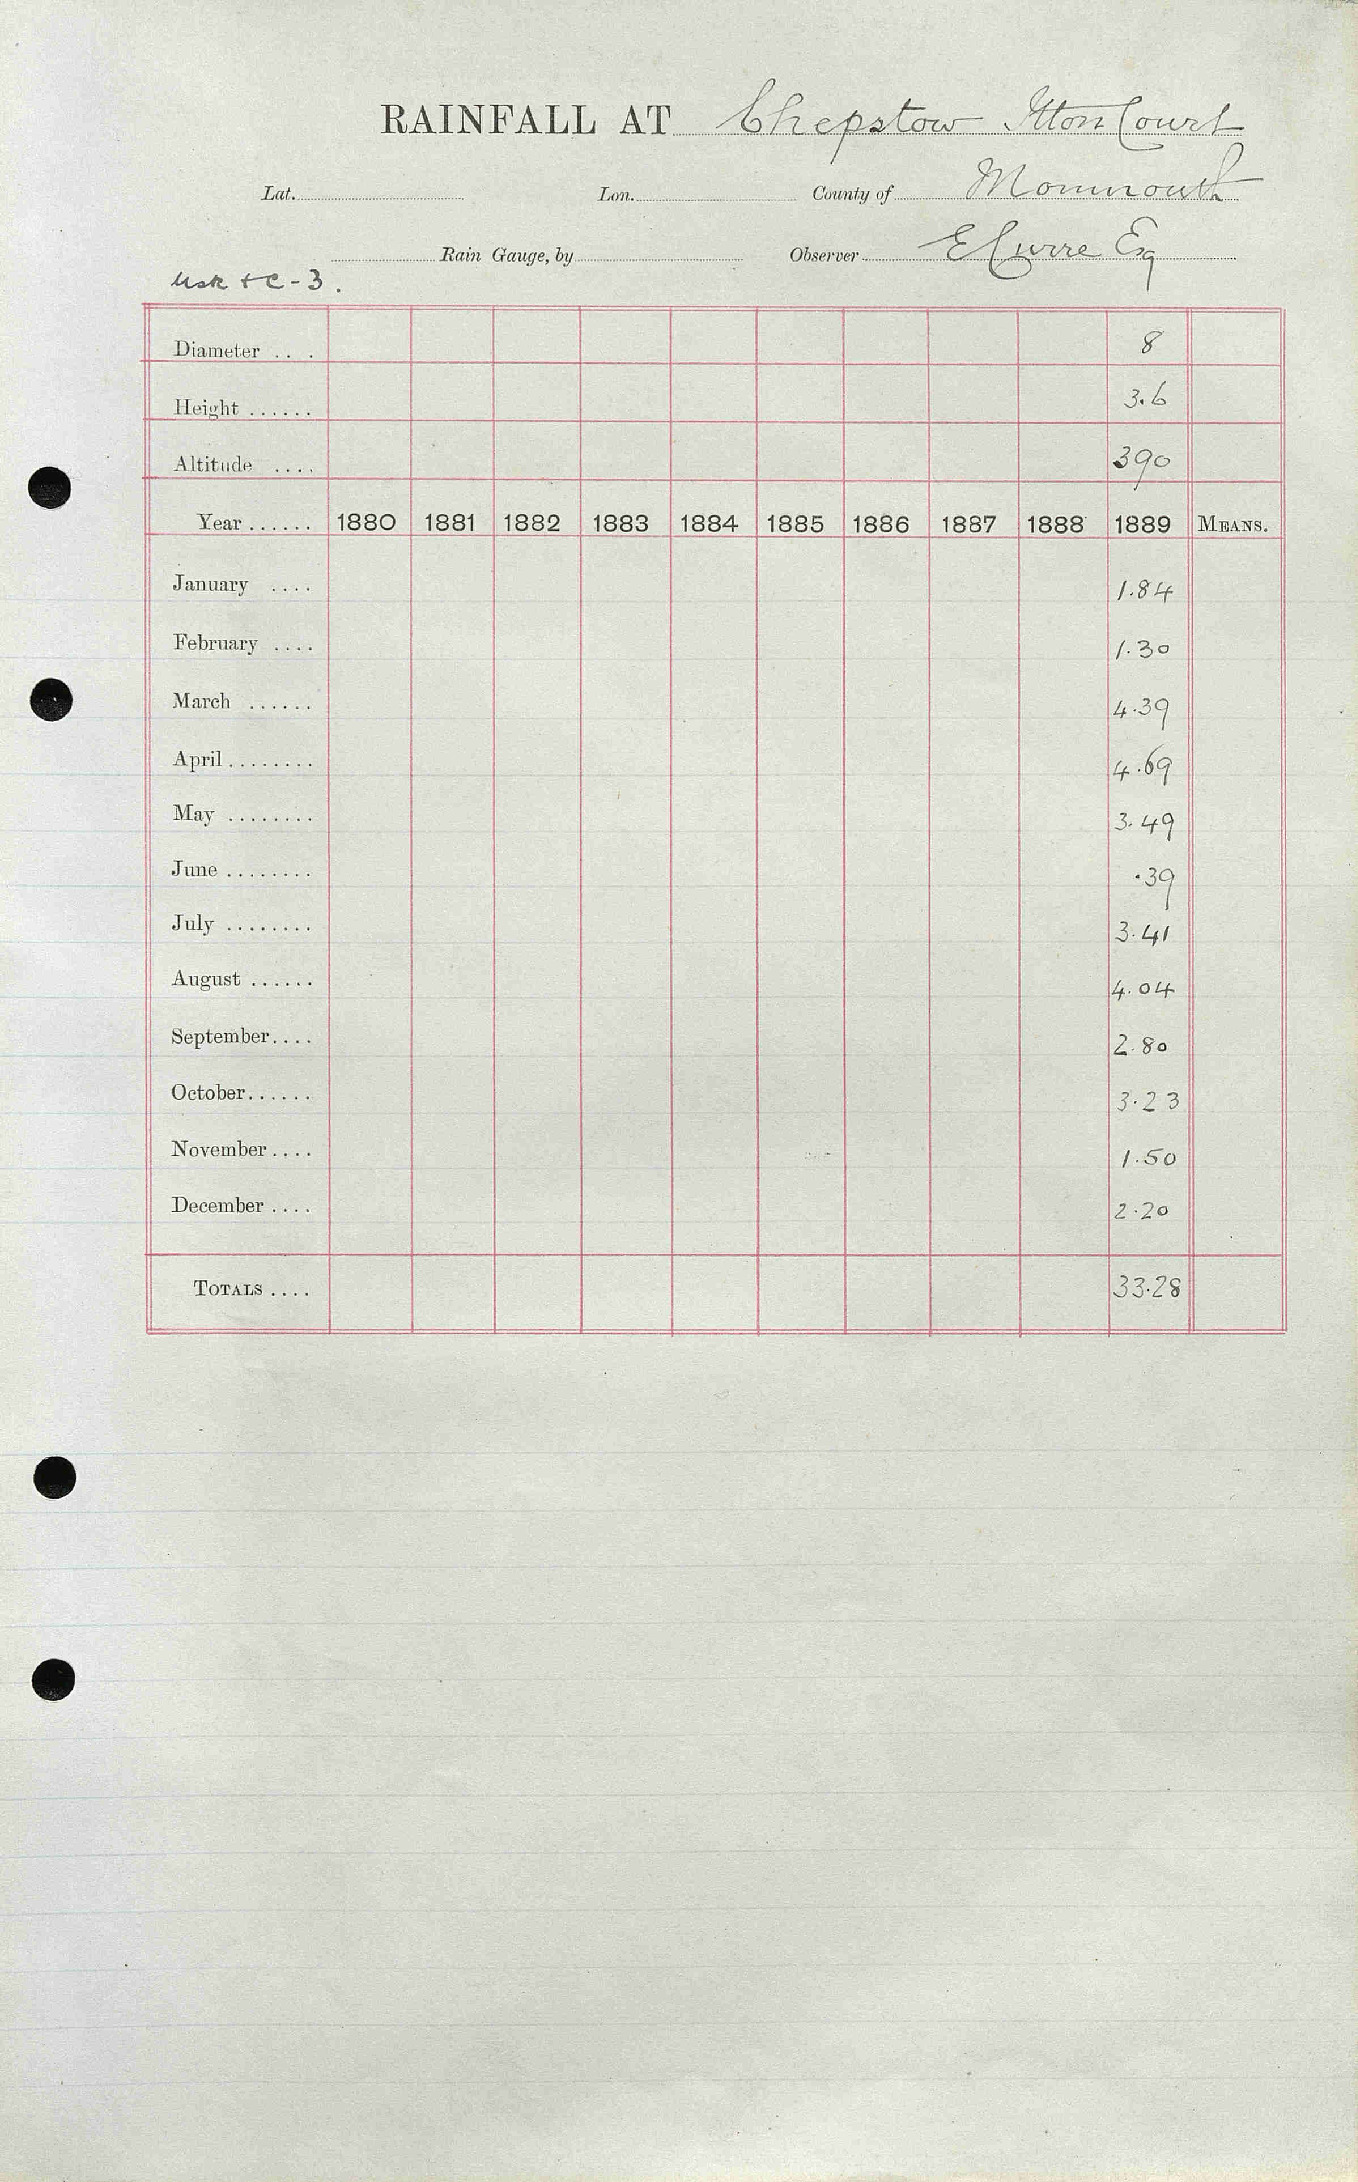 RAINFALL AT Chepstow Itton Court
Lat. Lon. County of Monmouth
Rain Gauge, by Observer E Curre Esq
Usk + C - 3.
Diameter .... 8
Height ...... 3.6
Altitude .... 390
Year ...... 1880 1881 1882 1883 1884 1885 1886 1887 1888 1889 MEANS.
January .... 1.84
February .... 1.30
March ...... 4.39
April ........ 4.69
May ........ 3.49
June ........ .39
July ........ 3.41
August ...... 4.04
September.... 2.80
October...... 3.23
November.... 1.50
December .... 2.20
TOTALS .... 33.28